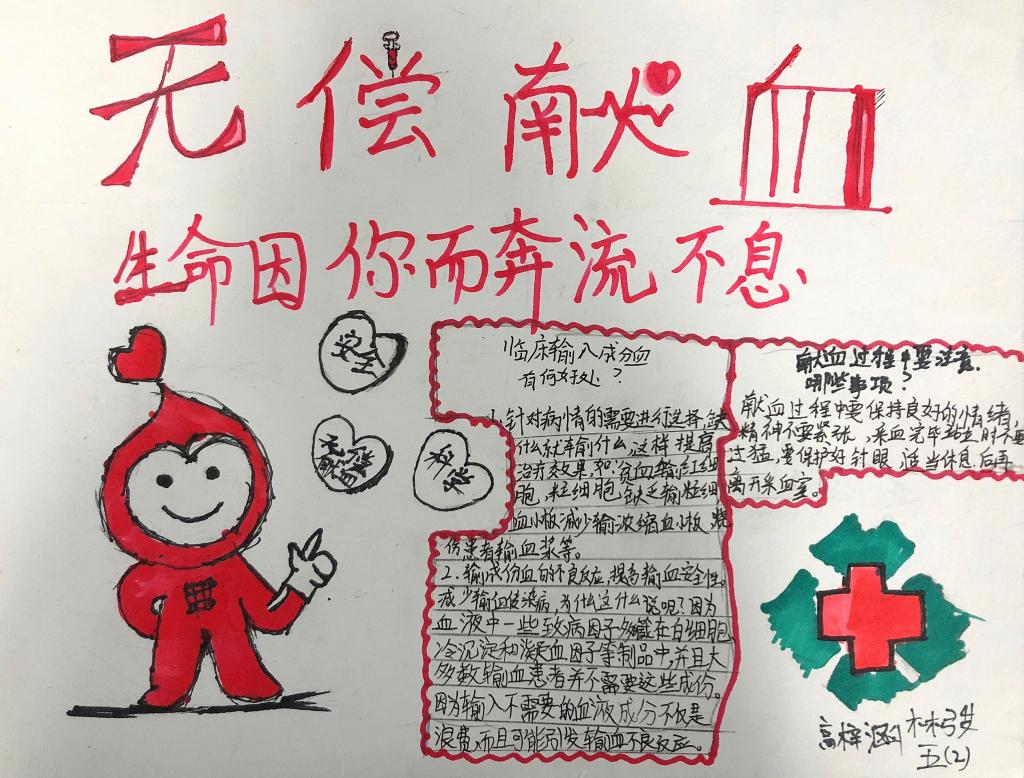 无偿献血
生命因你而奔流不息
安全
无偿
献血
科学
血
临床输入成分血
有何好处?
1.针对病情的需要进行选择,缺
什么就输什么,这样提高
治疗效果。如:贫血输红细
胞,粒细胞缺乏输粒细
血小板减少输浓缩血小板,烧
伤患者输血浆等。
2.输成份血的不良反应,提高输血安全性。
减少输血传染病,为什么这什么说呢?因为
血液中一些致病因子多藏在白细胞
冷沉淀和凝血因子等制品中,并且大
多数输血患者并不需要这些成份。
因为输入不需要的血液成分不仅是
浪费,而且可能引发输血不良反应。
献血过程中要注意
哪些事项?
献血过程中要保持良好的情绪,
精神不要紧张,采血完毕站立时不要
过猛,要保护好针眼,适当休息后再
离开采血室。
高梓涵
五(2)